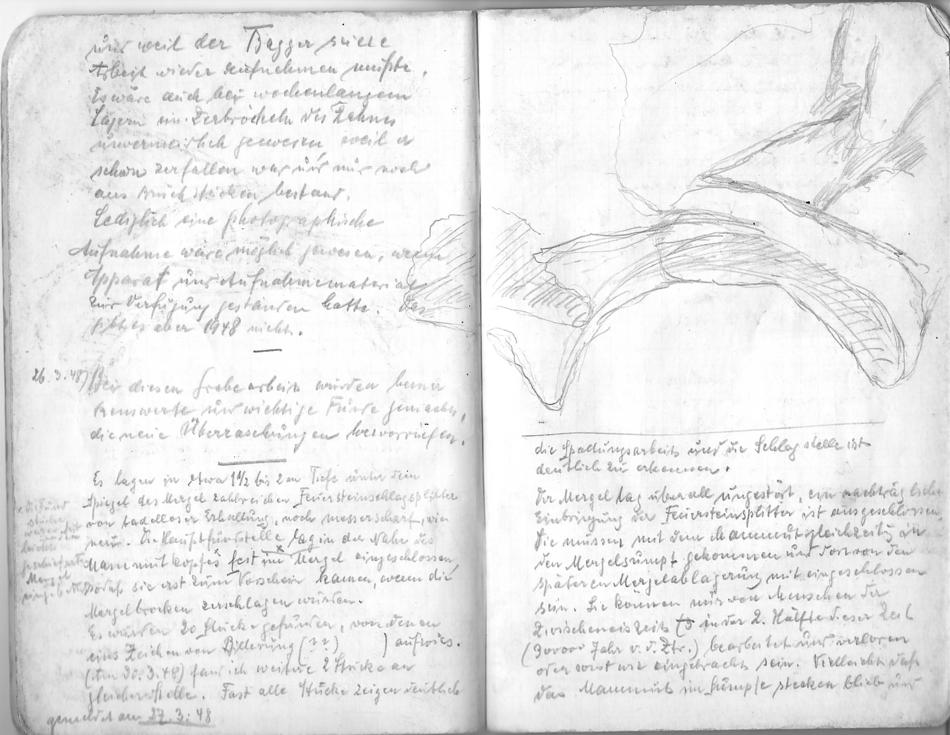 und weil der Bagger seine
Arbeit wieder aufnehmen mußte.
Es wäre auch bei wochenlangem
Lagern ein Zerbröckeln des Zahnes
unvermeidlich gewesen weil er
schon zerfallen war und nur noch
aus Bruchstücken bestand.
Lediglich eine photographische
Aufnahme wäre möglich gewesen, wenn
Apparat und Aufnahmematerial
zur Verfügung gestanden hätte. Das
gibt es aber 1948 nicht.
—
26.3.48 Bei diesen Grabearbeiten wurden bemer
kenswerte und wichtige Funde gemacht,
die neue Überraschungen hervorriefen.
Es lagen in etwa 1½ bis 2 m Tiefe unter dem
Spiegel des Mergel zahlreichen Feuersteinschlagsplitter
von tadelloser Erhaltung, noch messerscharf, wie
neu. Die Hauptfundstelle lag in der Nähe des
Mammutkopfes fest im Mergel eingeschlossen,
sodaß sie erst zum Vorschein kamen, wenn die
Mergelbrocken zerschlagen wurden.
Es wurden 20 Stücke gefunden, von denen
eins Zeichen von (??) ) aufwies.
(Am 30.3.48) fand ich weitere 2 Stücke an
gleicher Stelle. Fast alle Stücke zeigen deutlich
gemeldet am 27.3.48
die Spaltungsarbeit und die Schlagstelle ist
deutlich zu erkennen.
Der Mergel lag überall ungestört, ein nachträgliches
Einbringung der Feuersteinsplitter ist ausgeschlossen
Sie müssen mit dem Mammut gleichzeitig in
den Mergelsumpf gekommen und dort von den
späteren Mergelablagerung mit eingeschlossen
sein. Sie können nur von Menschen der
Zwischeneiszeit in der 2. Hälfte dieser Zeit
(30000 Jahr v. d. Ztr.) bearbeitet und verloren
oder sonst wie eingebracht sein. Vielleicht daß
das Mammut im Sumpfe stecken blieb und